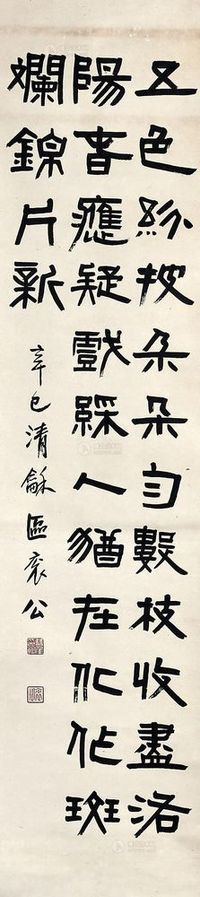 五色紛披朵朵勻數枝收盡洛
陽旾應疑戲綵人猶在化作斑
斕錦片新
辛巳清龢區公